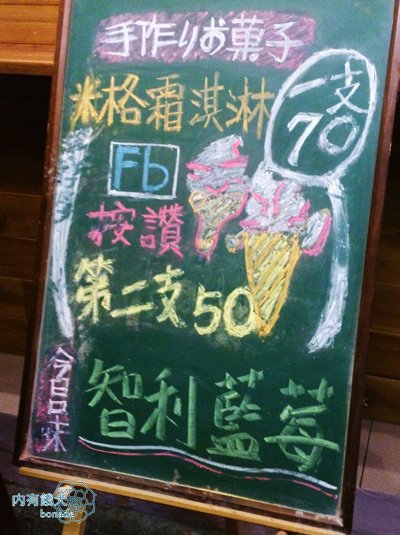 手作りお菓子
米格霜淇淋
一支
70
Fb
按讚
第二支50
今日口味
智利藍莓
內有餓犬
bonade